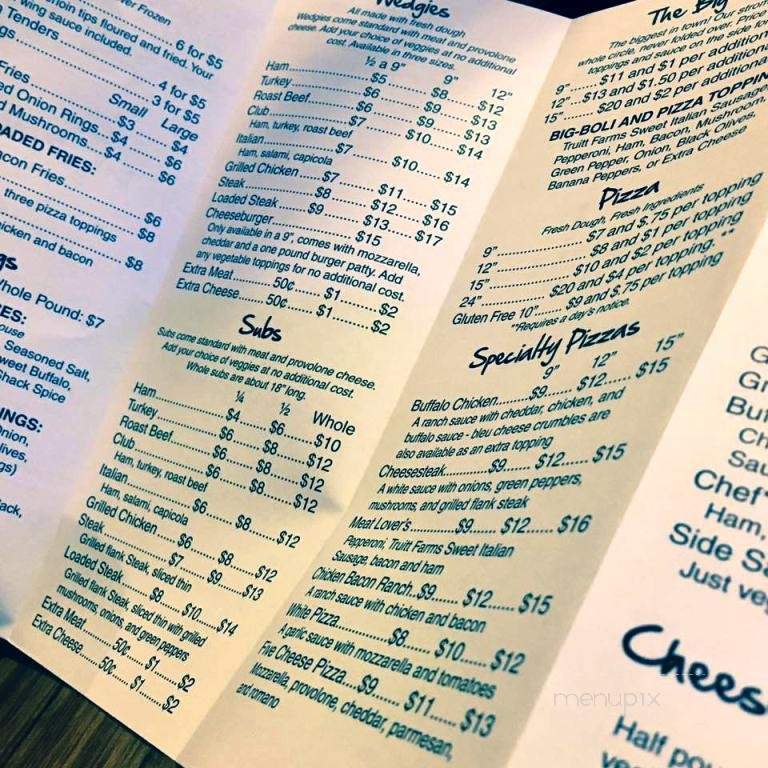 ver Frozen
erloin tips floured and fried. Your
wing sauce included.
6 for $5
Tenders
4 for $5
gs
3 for $5
Small Large
Fries $3 $4
ed Onion Rings $4 $6
d Mushrooms $4 $6
OADED FRIES:
acon Fries $6
three pizza toppings $8
hicken and bacon $8
gs
Whole Pound: $7
ES:
ouse
Seasoned Salt,
weet Buffalo,
Shack Spice
INGS:
nion,
lives,
gs)
ack,
Wedgies
All made with fresh dough
Wedgies come standard with meat and provolone
cheese. Add your choice of veggies at no additional
cost. Available in three sizes.
½ a 9" 9" 12"
Ham $5 $8 $12
Turkey $6 $9 $13
Roast Beef $6 $9 $13
Club $7 $10 $14
Ham, turkey, roast beef
Italian $7 $10 $14
Ham, salami, capicola
Grilled Chicken $7 $11 $15
Steak $8 $12 $16
Loaded Steak $9 $13 $17
Cheeseburger $15
Only available in a 9", comes with mozzarella,
cheddar and a one pound burger patty. Add
any vegetable toppings for no additional cost.
Extra Meat 50¢ $1 $2
Extra Cheese 50¢ $1 $2
Subs
Subs come standard with meat and provolone cheese.
Add your choice of veggies at no additional cost.
Whole subs are about 18" long.
¼ ½ Whole
Ham $4 $6 $10
Turkey $6 $8 $12
Roast Beef $6 $8 $12
Club $6 $8 $12
Ham, turkey, roast beef
Italian $6 $8 $12
Ham, salami, capicola
Grilled Chicken $6 $8 $12
Steak $7 $9 $13
Grilled flank Steak, sliced thin
Loaded Steak $8 $10 $14
Grilled flank Steak, sliced thin with grilled
mushrooms, onions, and green peppers
Extra Meat 50¢ $1 $2
Extra Cheese 50¢ $1 $2
The Big
The biggest in town! Our stron
whole circle, never folded over. Price
toppings and sauce on the side for
9" $11 and $1 per addition
12" $13 and $1.50 per additiona
15" $20 and $2 per additiona
BIG-BOLI AND PIZZA TOPPIN
Truitt Farms Sweet Italian Sausage
Pepperoni, Ham, Bacon, Mushroom,
Green Pepper, Onion, Black Olives,
Banana Peppers, or Extra Cheese
Pizza
Fresh Dough, Fresh Ingredients
9" $7 and $.75 per topping
12" $8 and $1 per topping
15" $10 and $2 per topping
24" $20 and $4 per topping. **
Gluten Free 10" $9 and $.75 per topping
**Requires a day's notice.
Specialty Pizzas
9" 12" 15"
Buffalo Chicken $9 $12 $15
A ranch sauce with cheddar, chicken, and
buffalo sauce - bleu cheese crumbles are
also available as an extra topping
Cheesesteak $9 $12 $15
A white sauce with onions, green peppers,
mushrooms, and grilled flank steak
Meat Lover's $9 $12 $16
Pepperoni, Truitt Farms Sweet Italian
Sausage, bacon and ham
Chicken Bacon Ranch $9 $12 $15
A ranch sauce with chicken and bacon
White Pizza $8 $10 $12
A garlic sauce with mozzarella and tomatoes
Five Cheese Pizza $9 $11 $13
Mozzarella, provolone, cheddar, parmesan,
and romano
G
Gr
Buf
Ch
Sau
Chef
Ham,
Side Sa
Just veg
Chees
Half pou
menupix